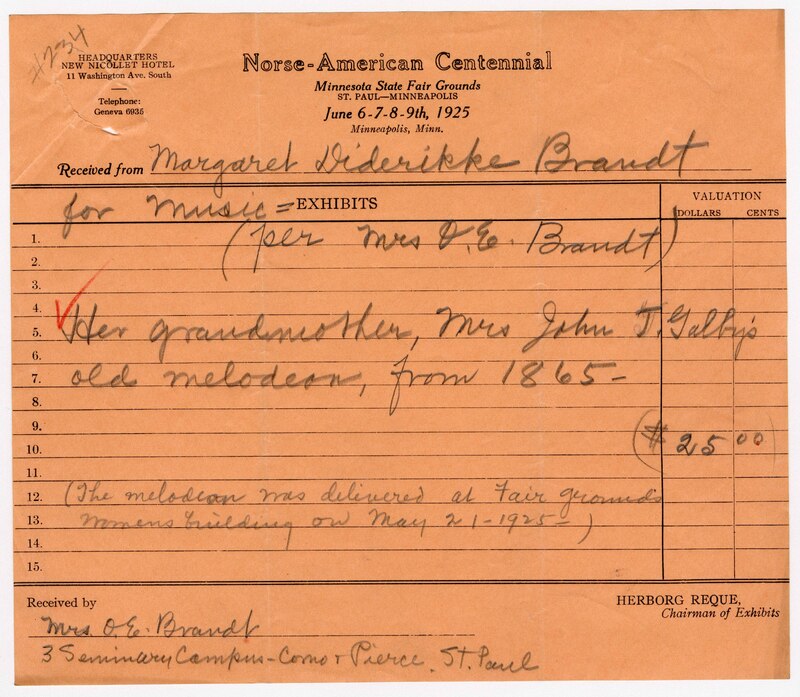 #234
HEADQUARTERS
NEW NICOLLET HOTEL
11 Washington Ave. South
Telephone:
Geneva 6935
Norse-American Centennial
Minnesota State Fair Grounds
ST. PAUL—MINNEAPOLIS
June 6-7-8-9th, 1925
Minneapolis, Minn.
Received from Margaret Diderikke Brandt
for Music = EXHIBITS
VALUATION
DOLLARS CENTS
1. (per Mrs O. E. Brandt)
2.
3.
4.
5. Her grandmother, Mrs John T. Galby's
6.
7. old melodeon, from 1865-
8.
9.
($ 25 00)
10.
11.
12. (The melodeon was delivered at Fair grounds
13. Womens building on May 21-1925-)
14.
15.
Received by
Mrs. O. E. Brandt
3 Seminary Campus-Como & Pierce. St. Paul
HERBORG REQUE,
Chairman of Exhibits